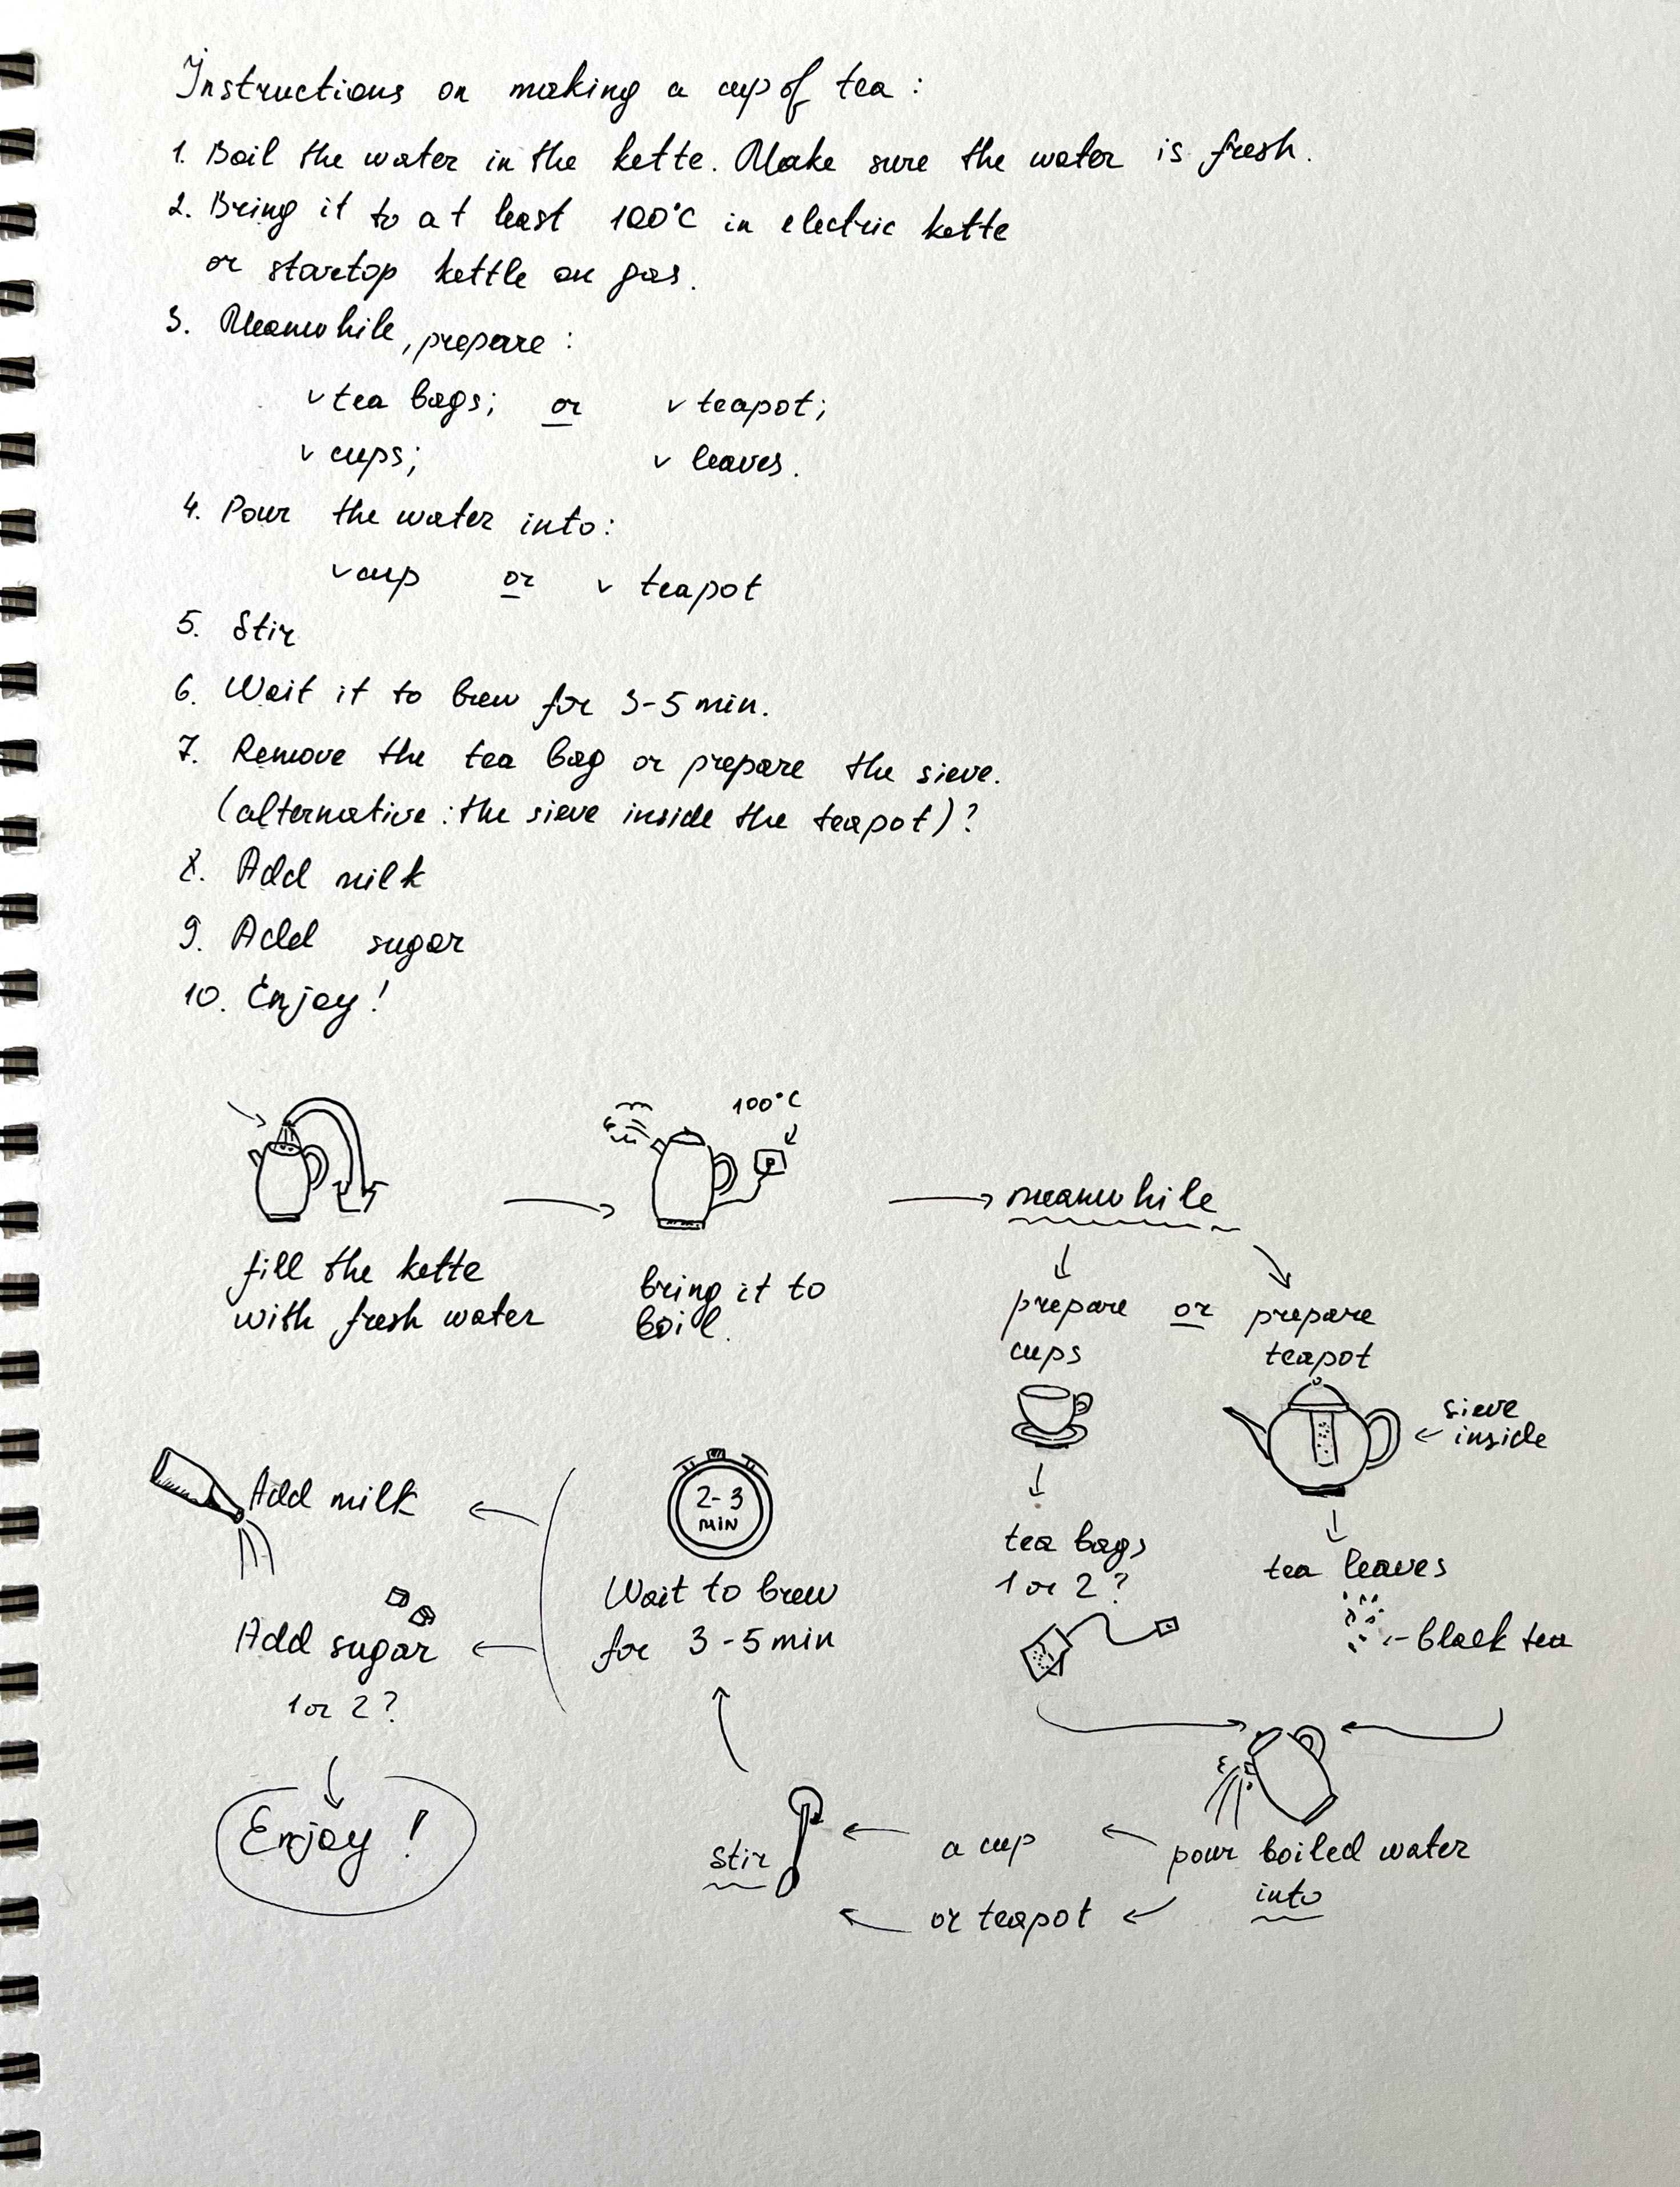 Instructions on making a cup of tea:
1. Boil the water in the kette. Make sure the water is fresh.
2. Bring it to at least 100°C in electric kette
or stovetop kettle on gas.
3. Meanwhile, prepare:
v tea bags; or v teapot;
v cups; v leaves.
4. Pour the water into:
v cup or v teapot
5. Stir
6. Wait it to brew for 3-5 min.
7. Remove the tea bag or prepare the sieve.
(alternative: the sieve inside the teapot)?
8. Add milk
9. Add sugar
10. Enjoy!
100°C
meanwhile
fill the kette
with fresh water
bring it to
boil.
prepare
cups
or
prepare
teapot
sieve
inside
tea bags
1 or 2?
tea leaves
black tea
pour boiled water
into
a cup
or teapot
stir
2-3
MIN
Wait to brew
for 3-5 min
Add milk
Add sugar
1 or 2?
Enjoy!